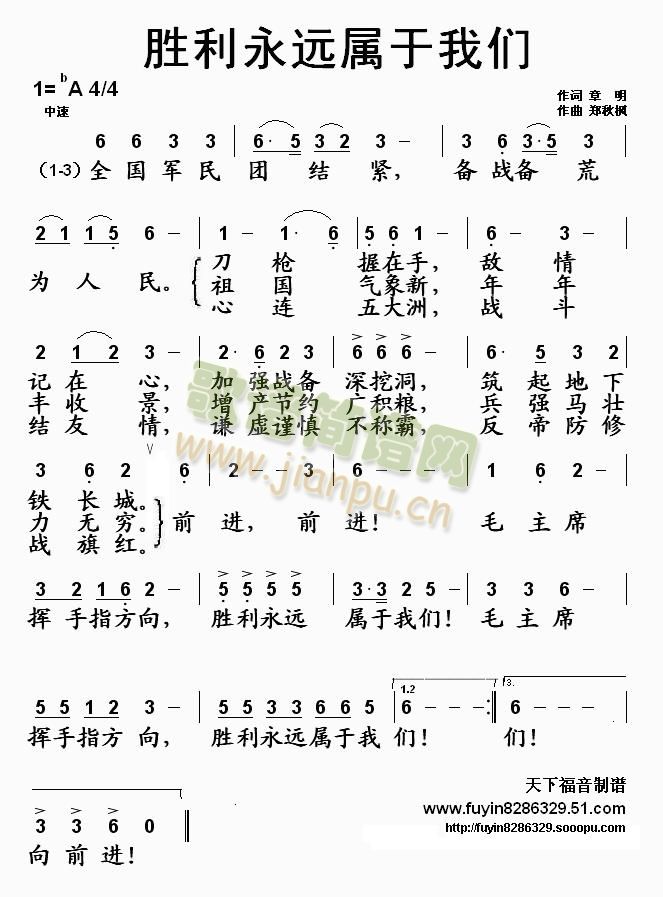 胜利永远属于我们
1= bA 4/4
中速
作词 章 明
作曲 郑秋枫
6 6 3 3 | 6· 5 3 2 | 3 - - - | 3 6 3·5 3 |
(1-3) 全国军民 团 结 紧, 备战备 荒
2 1 1 5 6 - | 1 - 1· 6 | 5 6 1 2 - | 6 - 3 - |
为 人 民。 刀 枪 握在手, 敌 情
祖 国 气象新, 年 年
心 连 五大洲, 战 斗
2 1 2 3 - | 2· 6 2 3 | 6 6 6 - | 6· 5 3 2 |
记 在 心, 加 强战备 深挖洞, 筑 起地下
丰 收 景, 增 产节约 广积粮, 兵 强马壮
结 友 情, 谦 虚谨慎 不称霸, 反 帝防修
3 6 2 6 | 2 - - 3 | 6 - - - | 1 6 2 - |
铁 长 城。
力 无 穷。 前 进, 前 进! 毛 主 席
战 旗 红。
3 2 1 6 2 - | 5 5 5 5 | 3·3 2 5 - | 3 3 6 - |
挥 手指方向, 胜利永远 属于我们! 毛 主 席
1.2
3.
5 5 1 2 3 - | 5 5 3 3 6 5 5 | 6 - - :| 6 - - |
挥手指方 向, 胜利永远属于我 们! 们!
3 3 6 0 ||
向 前 进!
天下福音制谱
www.fuyin8286329.51.com
http://fuyin8286329.sooopu.com
歌谱简谱网
www.jianpu.cn